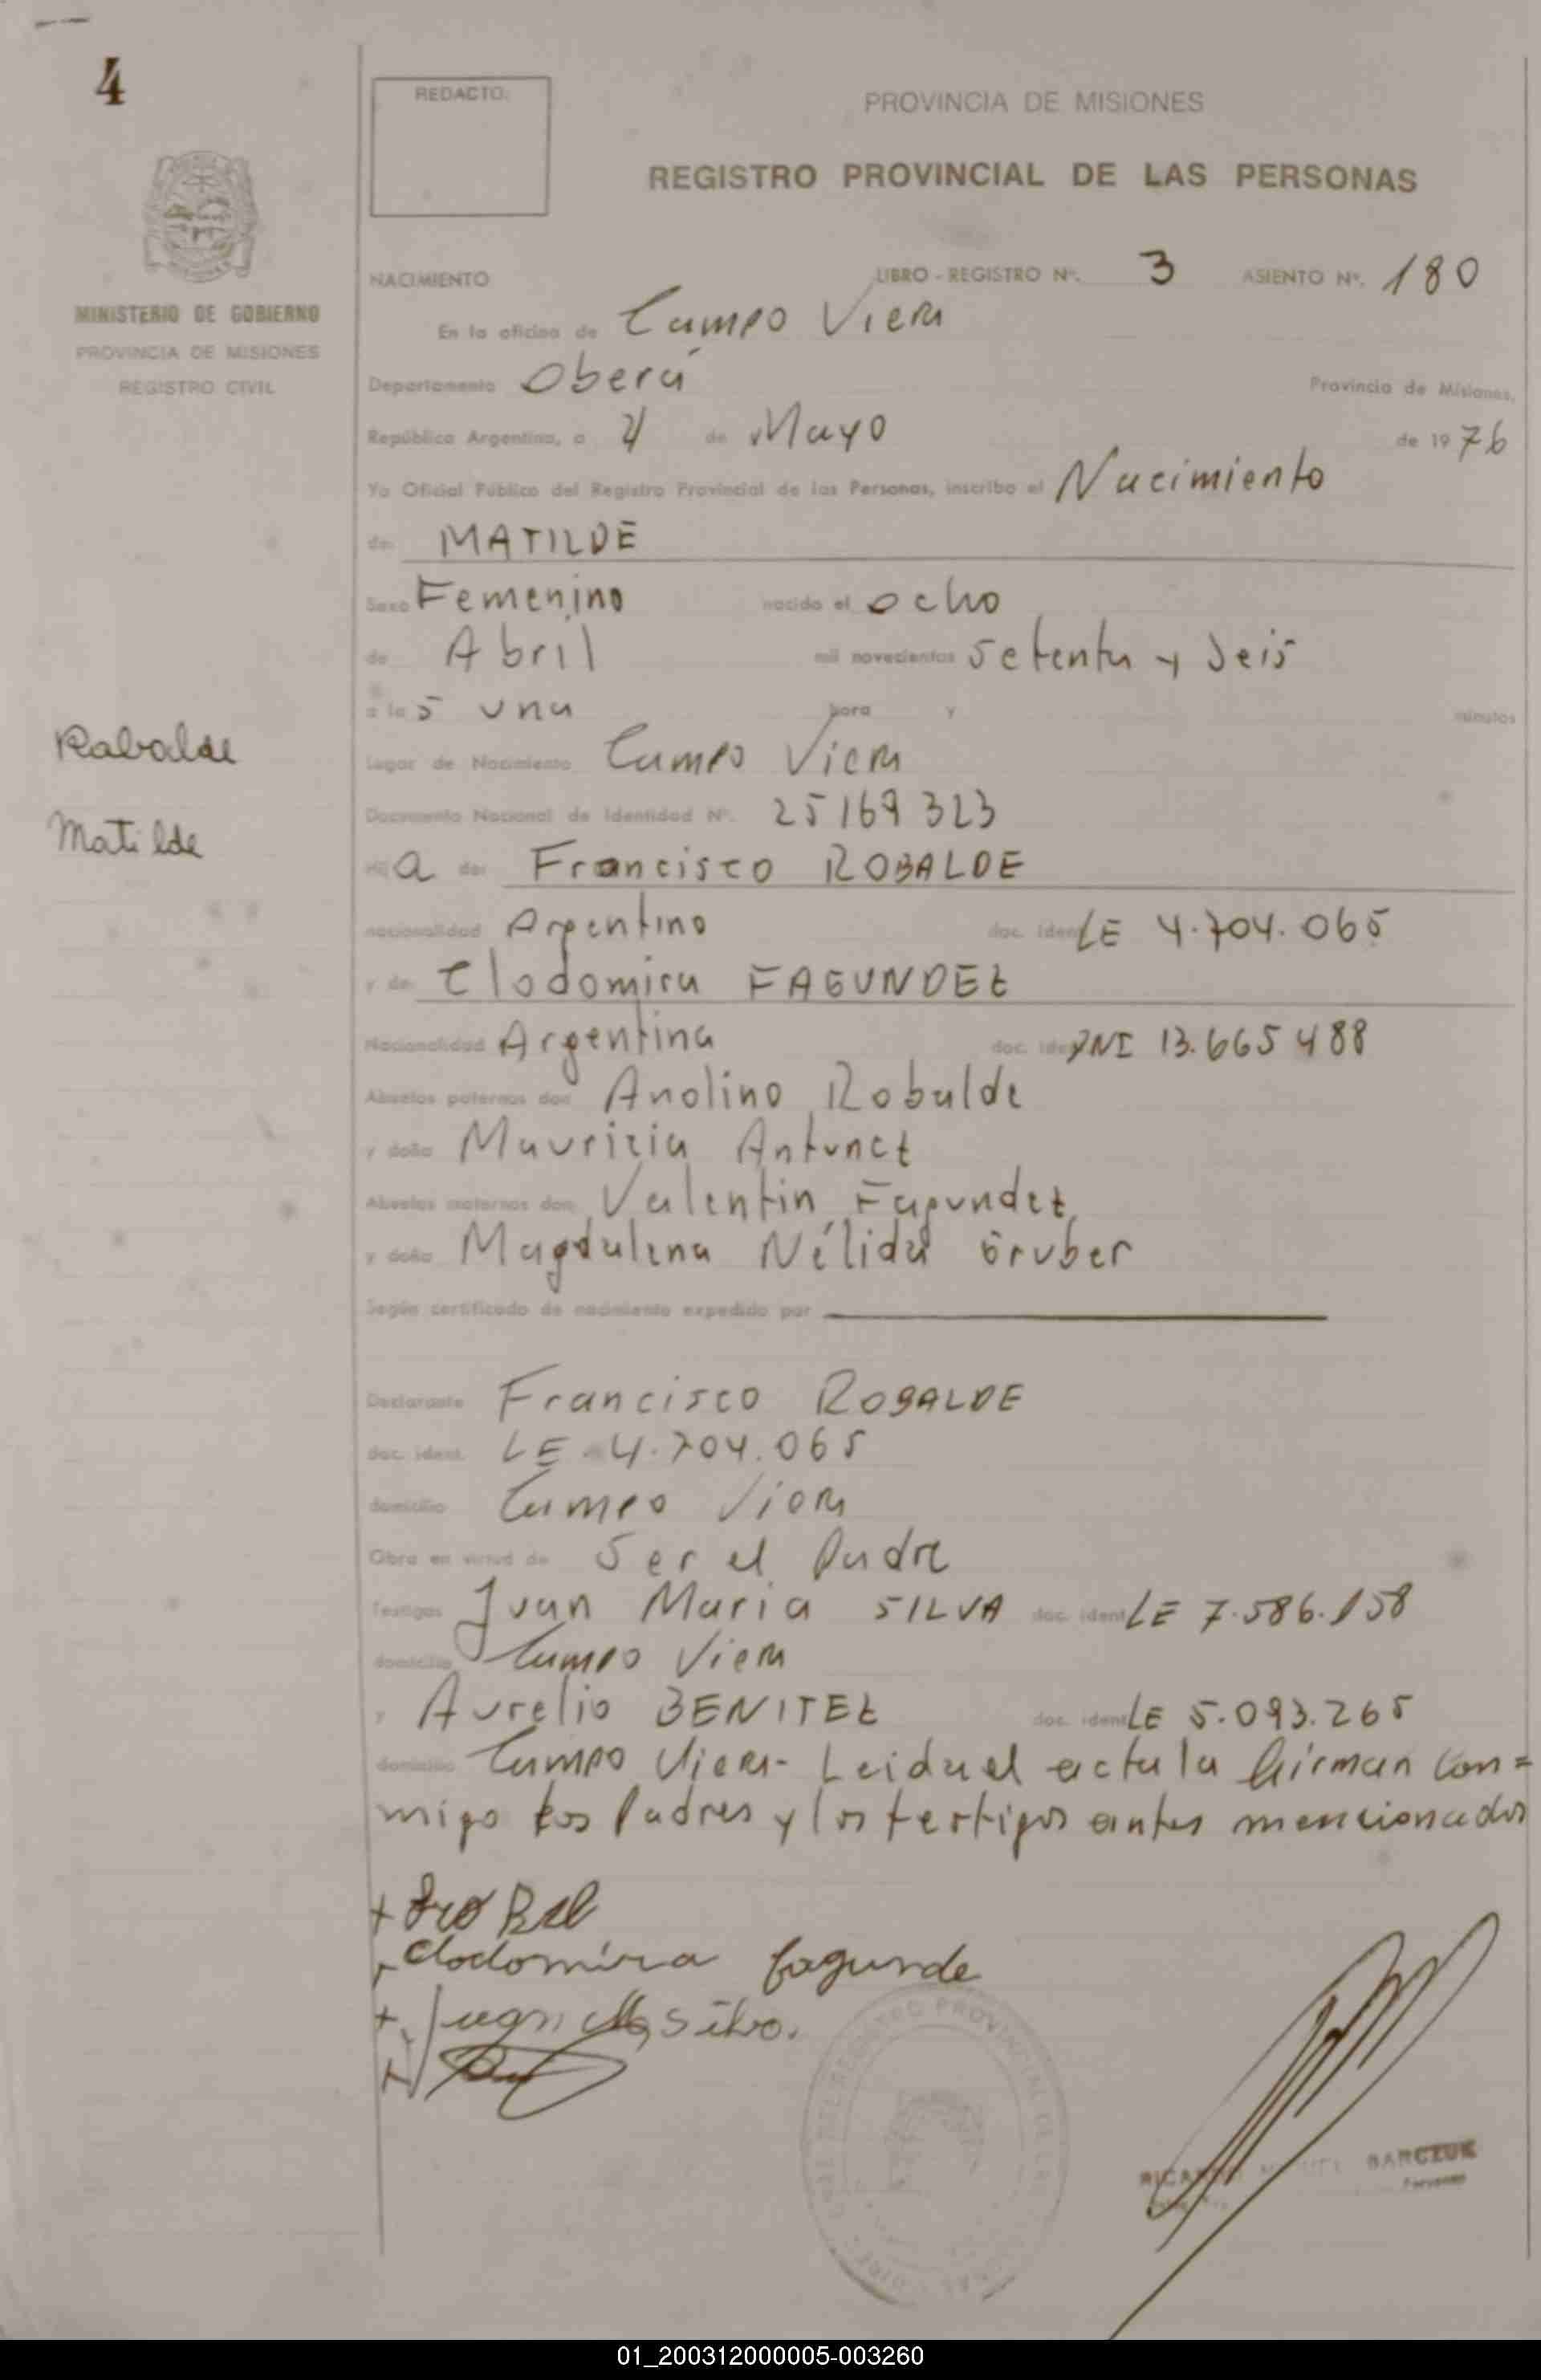 4
REDACTO:
PROVINCIA DE MISIONES
REGISTRO PROVINCIAL DE LAS PERSONAS
MINISTERIO DE GOBIERNO
PROVINCIA DE MISIONES
REGISTRO CIVIL
NACIMIENTO LIBRO - REGISTRO Nº. 3 ASIENTO Nº. 180
En la oficina de Campo Viera
Departamento Oberá Provincia de Misiones,
República Argentina, a de Mayo de 1976
Yo Oficial Público del Registro Provincial de las Personas, inscribo el Nacimiento
de: MATILDE
Sexo Femenino nacido el ocho
de Abril mil novecientos setenta y seis
a las una hora y minutos
Lugar de Nacimiento Campo Viera
Documento Nacional de Identidad Nº. 25169323
Rabalde
Matilde
Hija de: Francisco ROBALDE
nacionalidad Argentino doc. ident LE 4.704.065
y de Clodomira FAGUNDEZ
Nacionalidad Argentina doc. ident DNI 13.665488
Abuelos paternos don Anolino Robalde
y doña Mauricia Antunez
Abuelos maternos don Valentin Fagundez
y doña Magdalena Nélida Gruber
Según certificado de nacimiento expedido por
Declarante Francisco ROBALDE
doc. ident. LE 4.704.065
domicilio Campo Viera
Obra en virtud de Ser el Padre
Testigos Juan Maria SILVA doc. ident LE 7.586.158
domicilio Campo Viera
y Aurelio BENITEZ doc. ident LE 5.093.265
domicilio Campo Viera- Leida el acta la firman con=
migo los Padres y los testigos antes mencionados
Clodomira fagunde
Silva.
BARCZUK
01_200312000005-003260